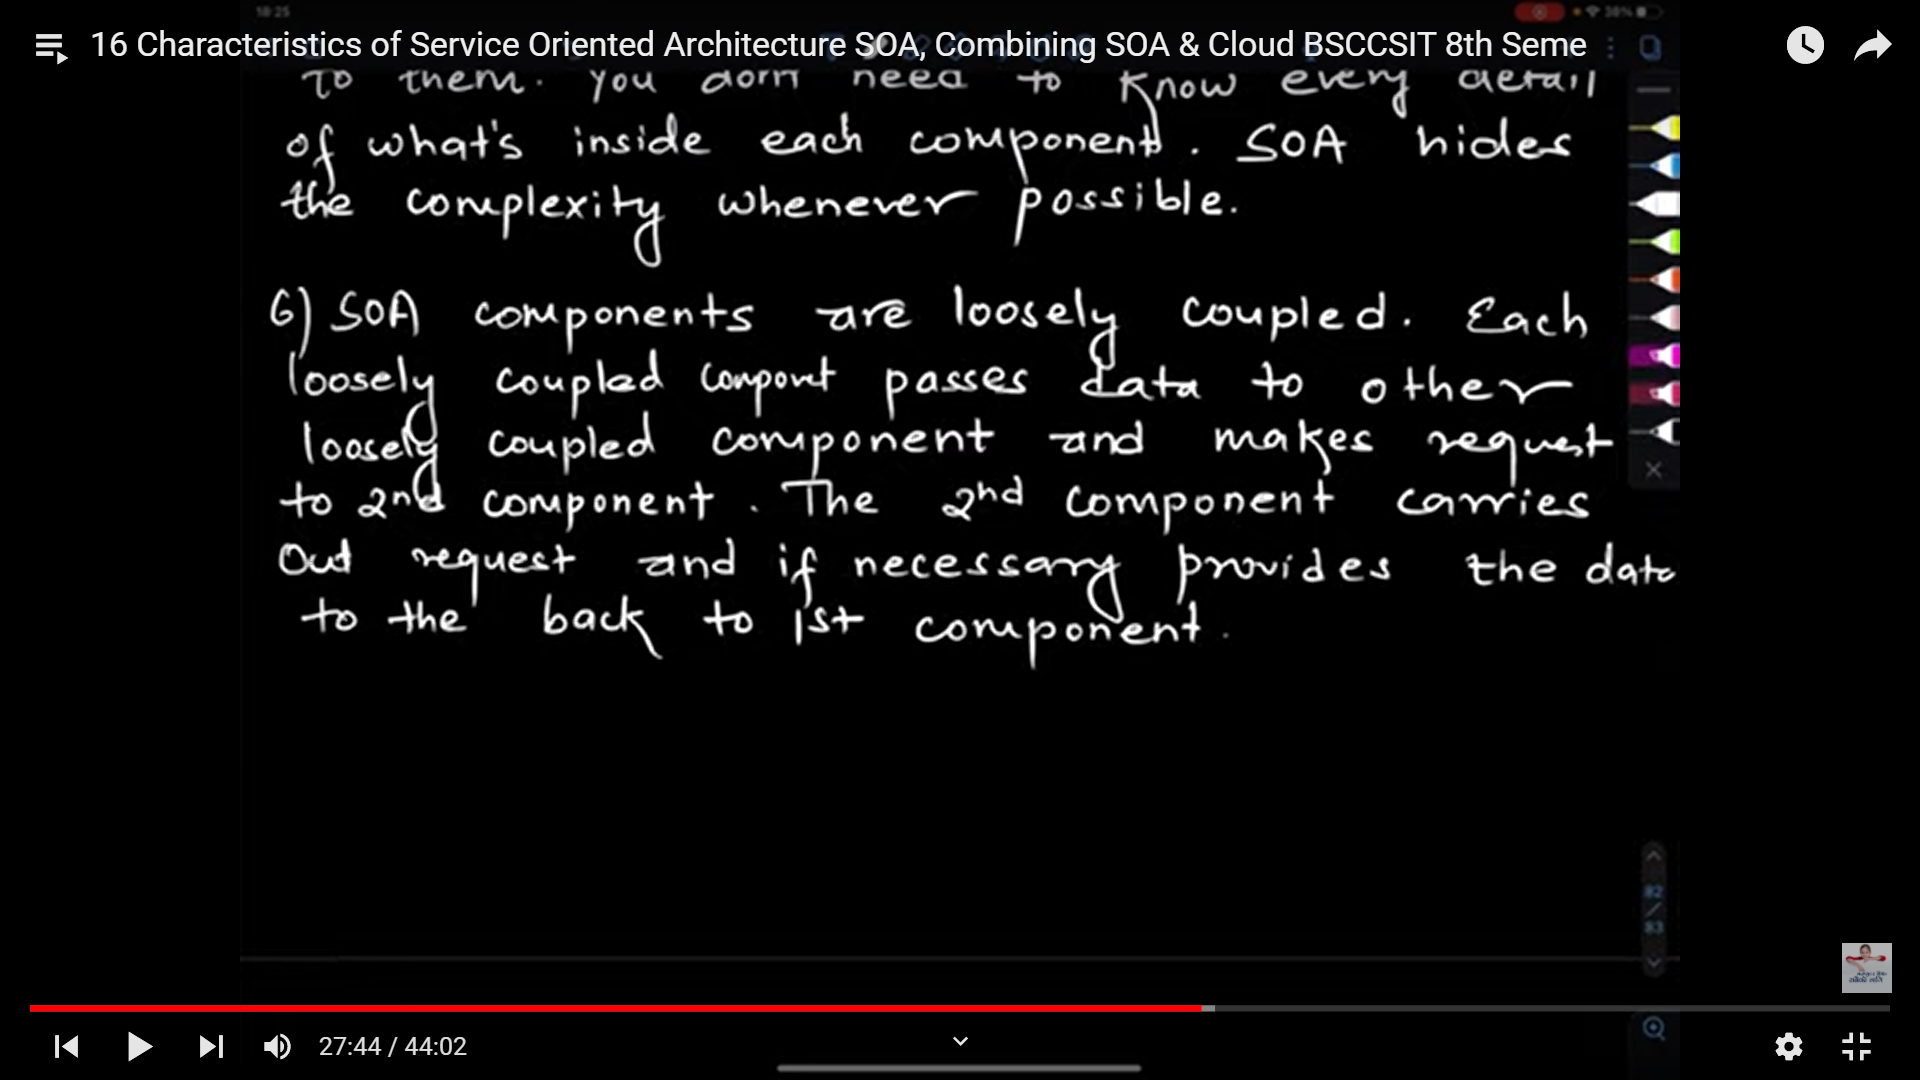 18:25
38%
16 Characteristics of Service Oriented Architecture SOA, Combining SOA & Cloud BSCCSIT 8th Seme
to them. You don't need to know every detail
of what's inside each component. SOA hides
the complexity whenever possible.
6) SOA components are loosely coupled. Each
loosely coupled compont passes data to other
loosely coupled component and makes request
to 2nd component. The 2nd component carries
out request and if necessary provides the data
to the back to 1st component.
82
/
83
27:44 / 44:02